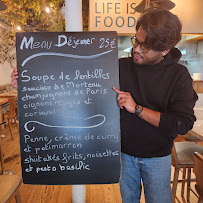 LIFE IS
FOOD
Menu Déjeuner 25€
Soupe de lentilles
saucisse de Morteau,
champignons de Paris
oignons rouges et
cornu
Penne, crème de curry
et potimarron
shiitakés frits, noisettes
et pesto basilic